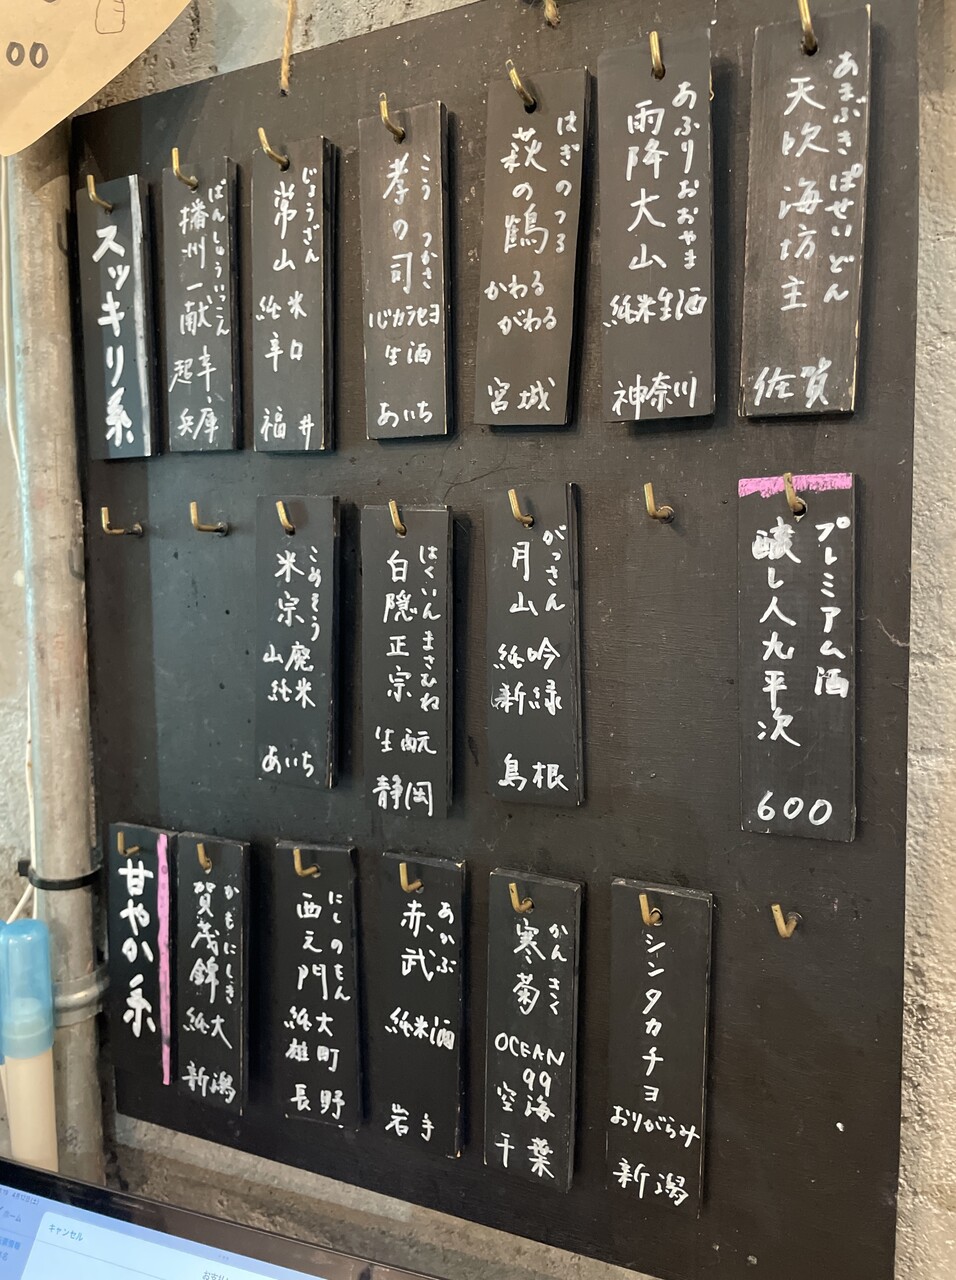 00
スッキリ系
播州一献
ばんしゅういっこん
超辛
兵庫
常山
じょうざん
純米
辛口
福井
孝の司
こう つかさ
バカラセヨ
生酒
あいち
萩の鶴
はぎのつる
かわる
がわる
宮城
雨降大山
あふりおおやま
純米生酒
神奈川
天吹海坊主
あまぶき ぽせいどん
佐賀
米宗
こめそう
山廃
純米
あいち
白隠正宗
はくいんまさむね
生酛
静岡
月山
がっさん
純吟
新緑
島根
プレミアム酒
醸し人九平次
600
甘やか系
賀茂錦
かもにしき
純大
新潟
西之門
にしのもん
純大
雄町
長野
赤武
あかぶ
純米酒
岩手
寒菊
かんきく
OCEAN
99
空海
千葉
シンタカチヨ
おりがらみ
新潟
4月12日(土)
ホーム
キャンセル
お支払